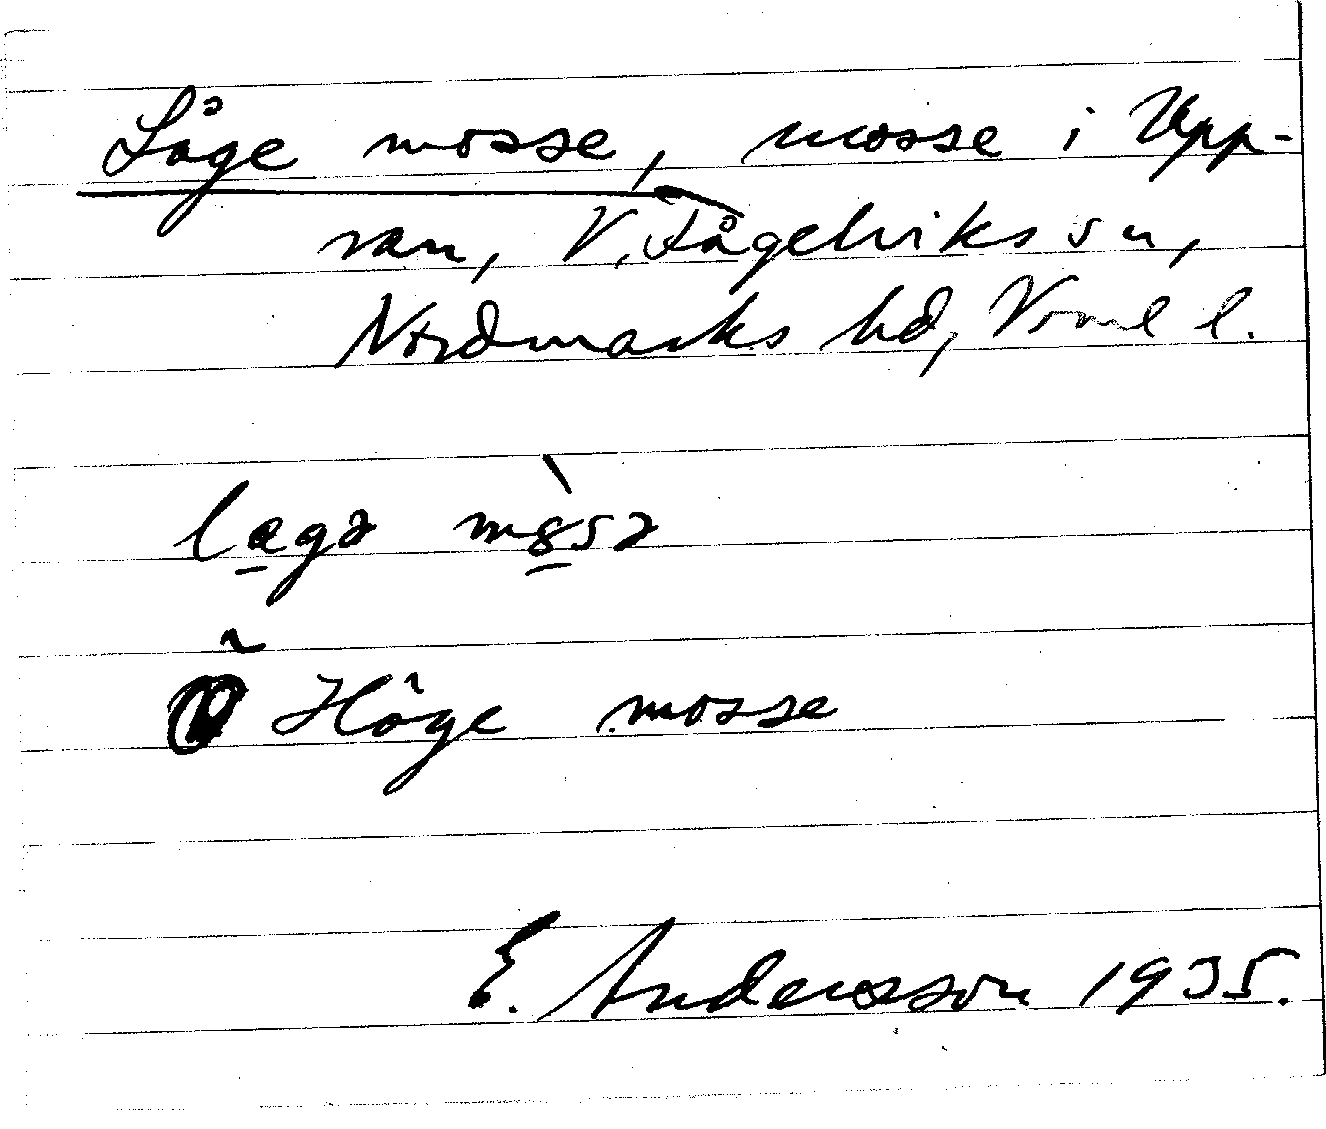 Låge mosse, mosse i Upp-
ran, V. Fågelviks sn,
Nordmarks hd, Vrml l.
lægə
Höge mosse
E. Andersson 1935.